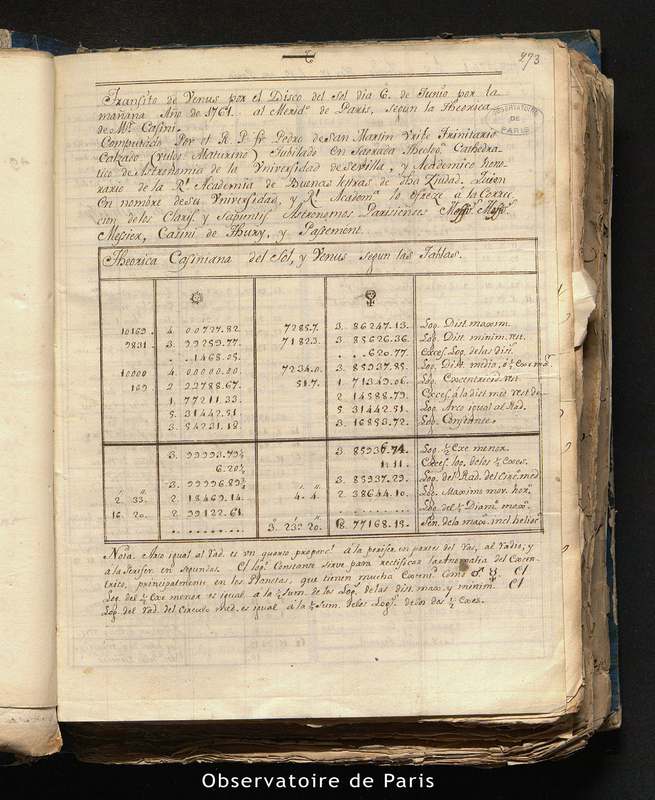 273
Transito de Venus por el Disco del Sol dia 6. de Junio por la
mañana Año de 1761. al Merid.º de Paris, segun la Theorica
de Mr. Casini.
OBSERVATOIRE DE PARIS
Computado Por el R. P. fr. Pedro de San Martin Uribe Trinitario
Calzado (vulgo Maturino) Jubilado en Sagrada Theolog.ª Cathedra-
tico de Astronomia de la Vniversidad de Sevilla, y Academico hono-
rario de la Rl. Academia de Buenas letras de dha Ziudad. Quien
en nombre de su Vniversidad, y Rl. Academ.ª lo ofreze à la Correc-
cion de los Claris.s y Sapientis.s Astronomos Parisienses
Messier, Casini de Thury, y Passement.
Theorica Casiniana del Sol, y Venus segun las Tablas.
☉ ♀
10169. 4. 00727.82. 7285.7. 3. 86247.13. Log. Dist. maxim.
9831. 3. 99259.77. 7182.3. 3. 85626.36. Log. Dist. minim. rest.
. . .1468.05. . . .620.77. Exces. Log. de las dist.s
10000 4. 00000.00. 7234.0. 3. 85937.85. Log. Dist. media, ô ½ Exe
169. 2 22788.67. 51.7. 1 71349.06. Log. Excentricid. rest.
1. 77211.33. 2 14588.79. Exces. à la dist. med. rest.
5. 31442.51. 5 31442.51. Log. Arco igual al Rad.
3. 54231.18 3. 16853.72. Log. Constante.
3. 99993.79½ 3. 85936.74. Log. ½ Exe menor.
6.20½ 1.11. Exces. log. de los ½ Exes.
3. 99996.89¾ 3. 85937.29. Log. del Rad. del Circ.º med.
2 33. 2 18469.14. 4. 4. 2 38644.10. Log. Maximo mov. hor.º
16. 20. 2 99122.61. . . . . . . . . . Log. del ½ Diam.º maxº.
. . . . . . . . 3. 23' 20. 77168.15. Sen. de la max. incl. helioc.
Nota. Arco igual al Rad. es un quarto proporc.l à la perifer. en partes del Rad., al Radio, y
à la Perifer. en segundos. El log.º Constante sirve para rectificar la Anomalia del Excen-
trico, principalmente en los Planetas, que tienen mucha Excent.d como ♂. ☿. El
Log. del ½ Exe menor es igual à la ½ Sum. de los Log.s de las dist. maxº. y minim. El
Log. del Rad. del Circulo Med. es igual à la ½ Sum. de los Log.s de los dos ½ Exes.
Observatoire de Paris